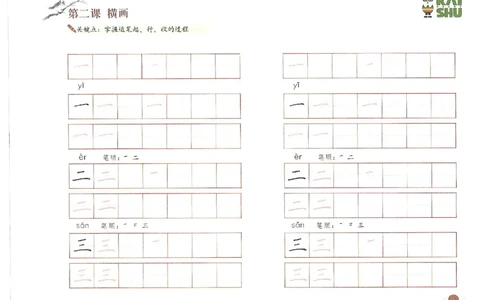 第二课 横画
KAI
SHU
关键点：掌握运笔起、行、收的过程
一 一 一
一 一 一
yī
yī
一 一 一 一
一 一 一 一
一 一
一 一
èr 笔顺：一 二
èr 笔顺：一 二
二 二 一
二 二 一
二 二
二 二
sān 笔顺：一 二 三
sān 笔顺：一 二 三
三 三 一
三 三 一
三 三
三 三